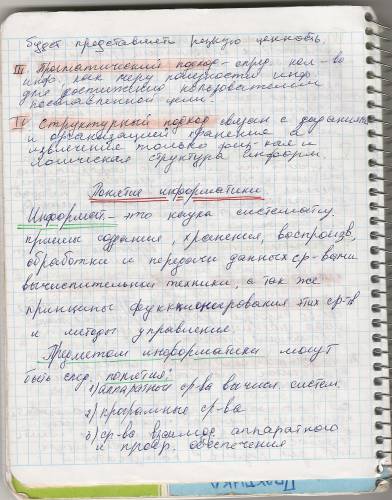 будет представлять редкую ценность.
III Прагматический подход - опред. кол-во
инф. как меру полезности инф.
для достижения пользователем
поставленной цели.
IV Структурный подход связан с задачами
и организацией хранение и
извлечение только
логическая структура информ.
Понятия информатики
Информат. - это наука систематиз.
приемы создания, хранения, воспроизв,
обработки и передачи данных ср-вами
вычислительной техники, а так же
принципы функционирования этих ср-тв
и методы управления
Предметом информатики могут
быть след. понятия:
1) аппаратные ср-ва вычисл. систем.
2) програмные ср-ва
3) ср-ва взаимод. аппаратного
и прогр. обеспечения
ПРАКТИКА